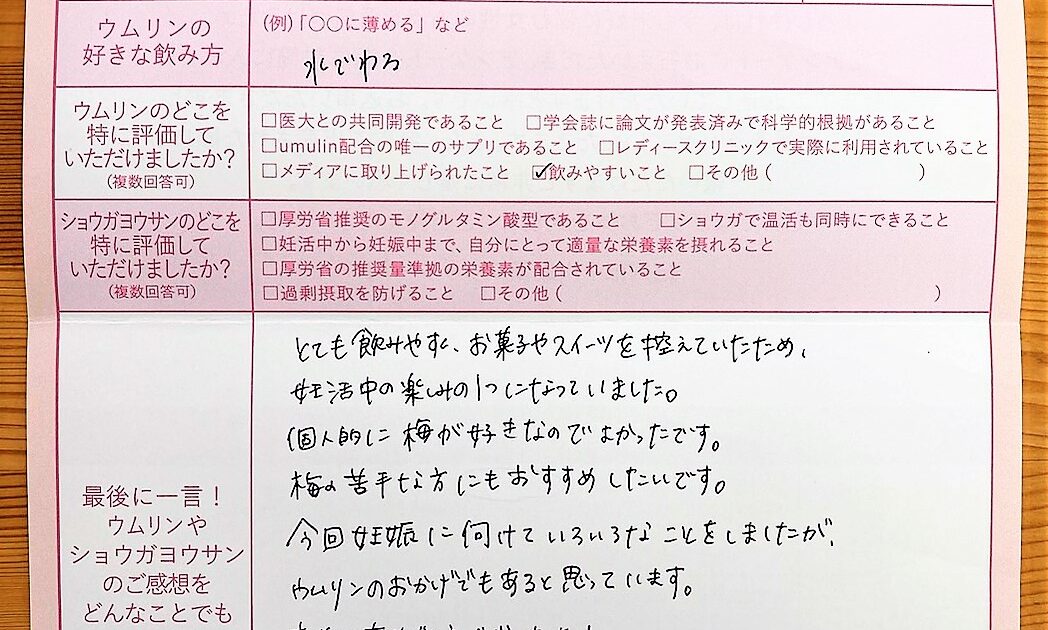 ウムリンの
好きな飲み方
(例)「〇〇に薄める」など
水でわる
ウムリンのどこを
特に評価して
いただけましたか?
(複数回答可)
□医大との共同開発であること □学会誌に論文が発表済みで科学的根拠があること
□umulin配合の唯一のサプリであること □レディースクリニックで実際に利用されていること
□メディアに取り上げられたこと ☑飲みやすいこと □その他( )
ショウガヨウサンのどこを
特に評価して
いただけましたか?
(複数回答可)
□厚労省推奨のモノグルタミン酸型であること □ショウガで温活も同時にできること
□妊活中から妊娠中まで、自分にとって適量な栄養素を摂れること
□厚労省の推奨量準拠の栄養素が配合されていること
□過剰摂取を防げること □その他( )
最後に一言!
ウムリンや
ショウガヨウサン
のご感想を
どんなことでも
とても飲みやすく、お菓子やスイーツを控えていたため、
妊活中の楽しみの1つになっていました。
個人的に梅が好きなのでよかったです。
梅の苦手な方にもおすすめしたいです。
今回妊娠に向けていろいろなことをしましたが、
ウムリンのおかげでもあると思っています。